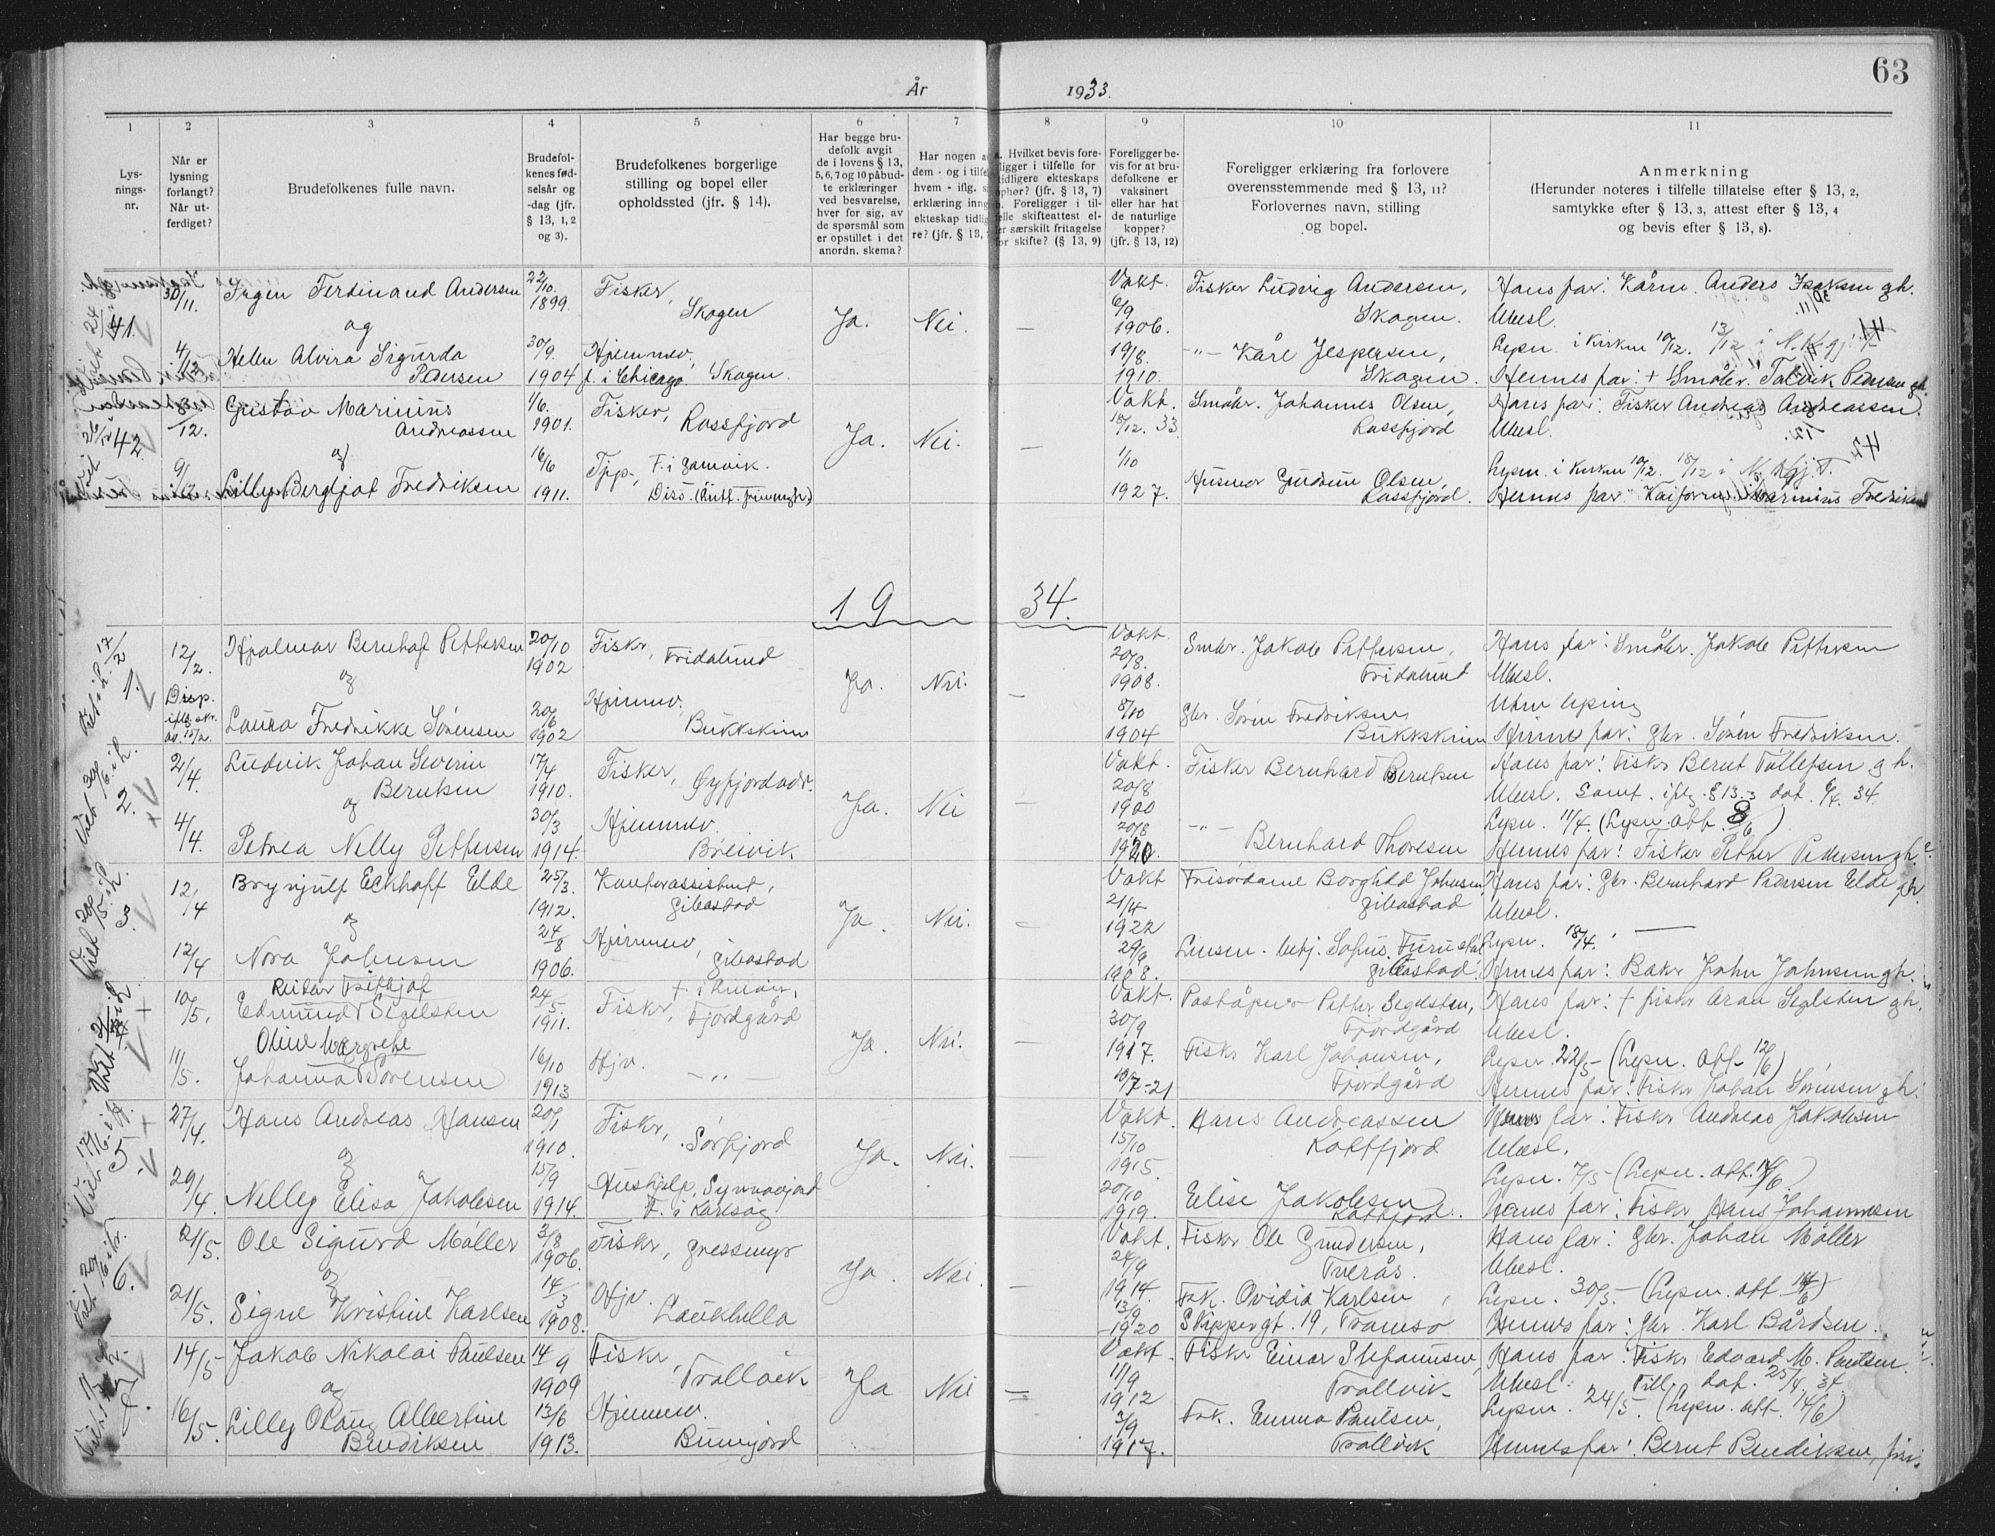 63
År 1933.
1 2 3 4 5 6 7 8 9 10 11
Lys-
nings-
nr.
Når er
lysning
forlangt?
Når ut-
ferdiget?
Brudefolkenes fulle navn.
Brudefol-
kenes fød-
selsår og
-dag (jfr.
§ 13, 1, 2
og 3).
Brudefolkenes borgerlige
stilling og bopel eller
opholdssted (jfr. § 14).
Har begge bru-
defolk avgit
de i lovens § 13,
5, 6, 7 og 10 påbud-
te erklæringer
ved besvarelse,
hver for sig, av
de spørsmål som
er opstillet i det
anordn. skema?
Har nogen a
dem - og i tilfe
hvem - iflg. s
erklæring inng
ekteskap tidlig
re? (jfr. § 13,
Hvilket bevis fore-
ligger i tilfelle for
tidligere ekteskaps
ophør? (jfr. § 13, 7)
Foreligger i til-
felle skifteattest el-
ler særskilt fritagelse
for skifte? (§ 13, 9)
Foreligger be-
vis for at bru-
defolkene er
vaksinert
eller har hat
de naturlige
kopper?
(jfr. § 13, 12)
Foreligger erklæring fra forlovere
overensstemmende med § 13, 11?
Forlovernes navn, stilling
og bopel.
Anmerkning
(Herunder noteres i tilfelle tillatelse efter § 13, 2,
samtykke efter § 13, 3, attest efter § 13, 4
og bevis efter § 13, 8).
41.
30/11.
4/12
Jrgen Ferdinand Andersen
og
Helen Alvira Sigurda
Pedersen
22/10.
1899.
30/9.
1904
Fisker,
Skogen
Hjemmev,
f. i Chicago. Skogen
Ja. Nei. —
Vakt.
6/9
1906.
19/8.
1910.
Fisker Ludvig Andersen,
Skogen.
-"- Kåre Jespersen,
Skogen.
Hans far: Kårm. Anders Isaksen gh.
Ubesl.
Lysn. i kirken 10/12. 13/12 i N.
Hennes far: + Småbr. Pedersen gh.
42.
12.
9/12
Gustav Marinius
Andreassen
og
Lilly Bergljot Fredriksen
1/6.
1901.
16/6
1911.
Fisker,
Rossfjord
F. i Gamvik.
Ja. Nei. —
Vakt.
18/12. 33
1/10
1927.
Småbr. Johannes Olsen,
Rossfjord
Husmor Gudrun Olsen,
Rossfjord.
Hans far: Fisker Andreas Andreassen.
Ubesl.
Lysn. i kirken 10/12. 18/12 i N.
Hennes far: Marinius Fredriksen
19 34.
1.
12/2.
Disp.
iflg. skr.
av. 15/2.
Hjalmar Bernhof Pettersen
og
Laura Fredrikke Sørensen
20/10
1902
20/6
1902
Fisker,
Fridalund
Hjemmev,
Bukkskinn
Ja. Nei. —
Vakt.
20/8.
1908.
8/10
1904
Småbr. Jakob Pettersen,
Fridalund
gbr. Søren Fredriksen,
Bukkskinn
Hans far: Småbr. Jakob Pettersen
Ubesl.
Uten lysning
Hennes far: gbr. Søren Fredriksen.
2.
2/4.
4/4.
Ludvik Johan Severin
Berntsen
og
Petrea Nelly Pettersen
17/4
1910.
30/3
1914.
Fisker,
Øyfjord
Hjemmev.
Breivik
Ja. Nei —
Vakt.
20/8
1920
20/8
1920.
Fisker Bernhard Berntsen
-"-
Bernhard Thoresen
Hans far: Fisker Bernt Tollefsen gh.
Ubesl. Samt. iflg. § 13.3 dat. 9/4. 34.
Lysn. 11/4. (Lysn. att. 8/6)
Hennes far: Fisker Petter Pedersen gh.
3.
12/4
12/4
Brynjulf Eckhoff Elde
og
Nora Johnsen
25/3.
1912.
24/8
1906.
Kontorassistent,
Gibostad
Hjemmev,
Gibostad
Ja. Nei. —
Vakt
21/4
1922
29/9
1908.
Frisørdame Borghild Johnsen
Gibostad
Linsen. betj. Sofus Furustad
Gibostad.
Hans far: Gbr. Bernhard Pedersen Elde gh.
Ubesl.
Lysn. 18/4. —
Hennes far: Baker John Johnsen gh.
10/5.
11/5.
Reidar Fritjof
Edmund Segelsten
Oline Margrethe
Johanna Sørensen
24/5.
1911.
16/10
1913
Fisker,
Fjordgård
Hjv.
-"-
Ja. Nei. —
Vakt.
30/9
1917.
10/7-21
Poståpner Petter Segelsten,
Fjordgård
Fisker Karl Johansen,
Fjordgård
Hans far: + fisker Aron Segelsten gh.
Ubesl.
Lysn. 22/5 — (Lysn. att. 12/6)
Hennes far: Fisker Johan Sørensen gh.
5
27/4.
29/4.
Hans Andreas Hansen
og
Nelley Elisa Jakobsen
20/1
1910.
15/9
1914.
Fisker,
Sørfjord
Hushjelp,
F. i Karlsøy
Ja. Nei. —
Vakt.
15/10
1915.
20/10
1919.
Hans Andreassen
Kattfjord
Elise Jakobsen
Kattfjord.
Hans far: Fisker Andreas Jakobsen
Ubesl.
Lysn. 7/5 — (Lysn. att. 14/6)
Hennes far: Fisker Hans Johannesen
6.
21/5.
21/5.
Ole Sigurd Møller
og
Signe Kristine Karlsen
3/8
1906.
14/3
1908.
Fisker, Gressmyr
Hjv.
Laukhella
Ja. Nei. —
Vakt.
24/9
1914.
13/9
1920
Fisker Ole Gundersen,
Tverås.
Frk. Ovidia Karlsen,
Skippergt. 19, Tromsø
Hans far: Gbr. Johan Møller
Ubesl.
Lysn. 30/5. — (Lysn. att. 14/6)
Hennes far: Gbr. Karl Bårdsen.
7.
14/5
16/5.
Jakob Nikolai Paulsen
og
Lilly Olaug Albertine
Bendiksen
14/9
1909
13/6
1913.
Fisker,
Trollvik
Hjemmev.
Bunnjord
Ja Nei —
Vakt
11/9
1912
3/9
1917.
Fisker Einar Stefanussen,
Trollvik
Frk. Emma Paulsen,
Trollvik
Hans far: Fisker Edvard M. Paulsen.
Ubesl. Till. dat. 25/4. 34.
Lysn. 24/5. (Lysn. att. 14/6)
Hennes far: Bernt Bendiksen,